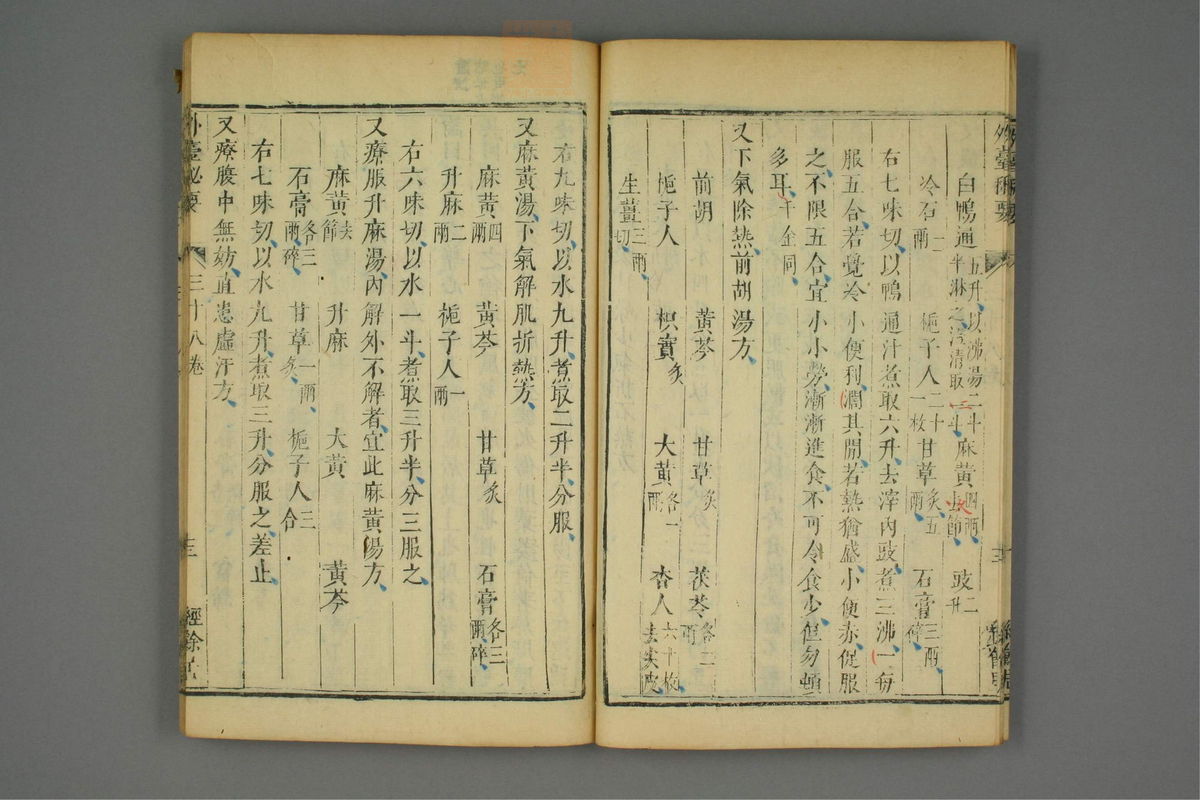 外臺秘要
白鴨通五升以沸湯二斗半淋之澄清取二斗 麻黃四兩去節 豉二升
冷石二兩 梔子人二十一枚 甘草炙五兩 石膏三兩碎
右七味切以鴨通汁煮取六升去滓內豉煮三沸一每
服五合若覺冷小便利潤其開若熱猶盛小便赤促服
之不限五合宜小小勞漸漸進食不可令食少但勿頓
多耳千金同
又下氣除熱前胡湯方
前胡 黃芩 甘草炙 茯苓各二兩
梔子人 枳實炙 大黃各一兩 杏人六十枚去尖皮
生薑三兩切
右九味切以水九升煮取二升半分服
又麻黃湯下氣解肌折熱方
麻黃四兩 黃芩 甘草炙 石膏各三兩碎
升麻二兩 梔子人一兩
右六味切以水一斗煮取三升半分三服之
又療服升麻湯內解外不解者宜此麻黃湯方
麻黃去節 升麻 大黃 黃芩
石膏各三兩碎 甘草一兩炙 梔子人三合
右七味切以水九升煮取三升分服之差止
又療腹中無妨直患虛汗方
外臺秘要 三十八卷 十三 經餘居